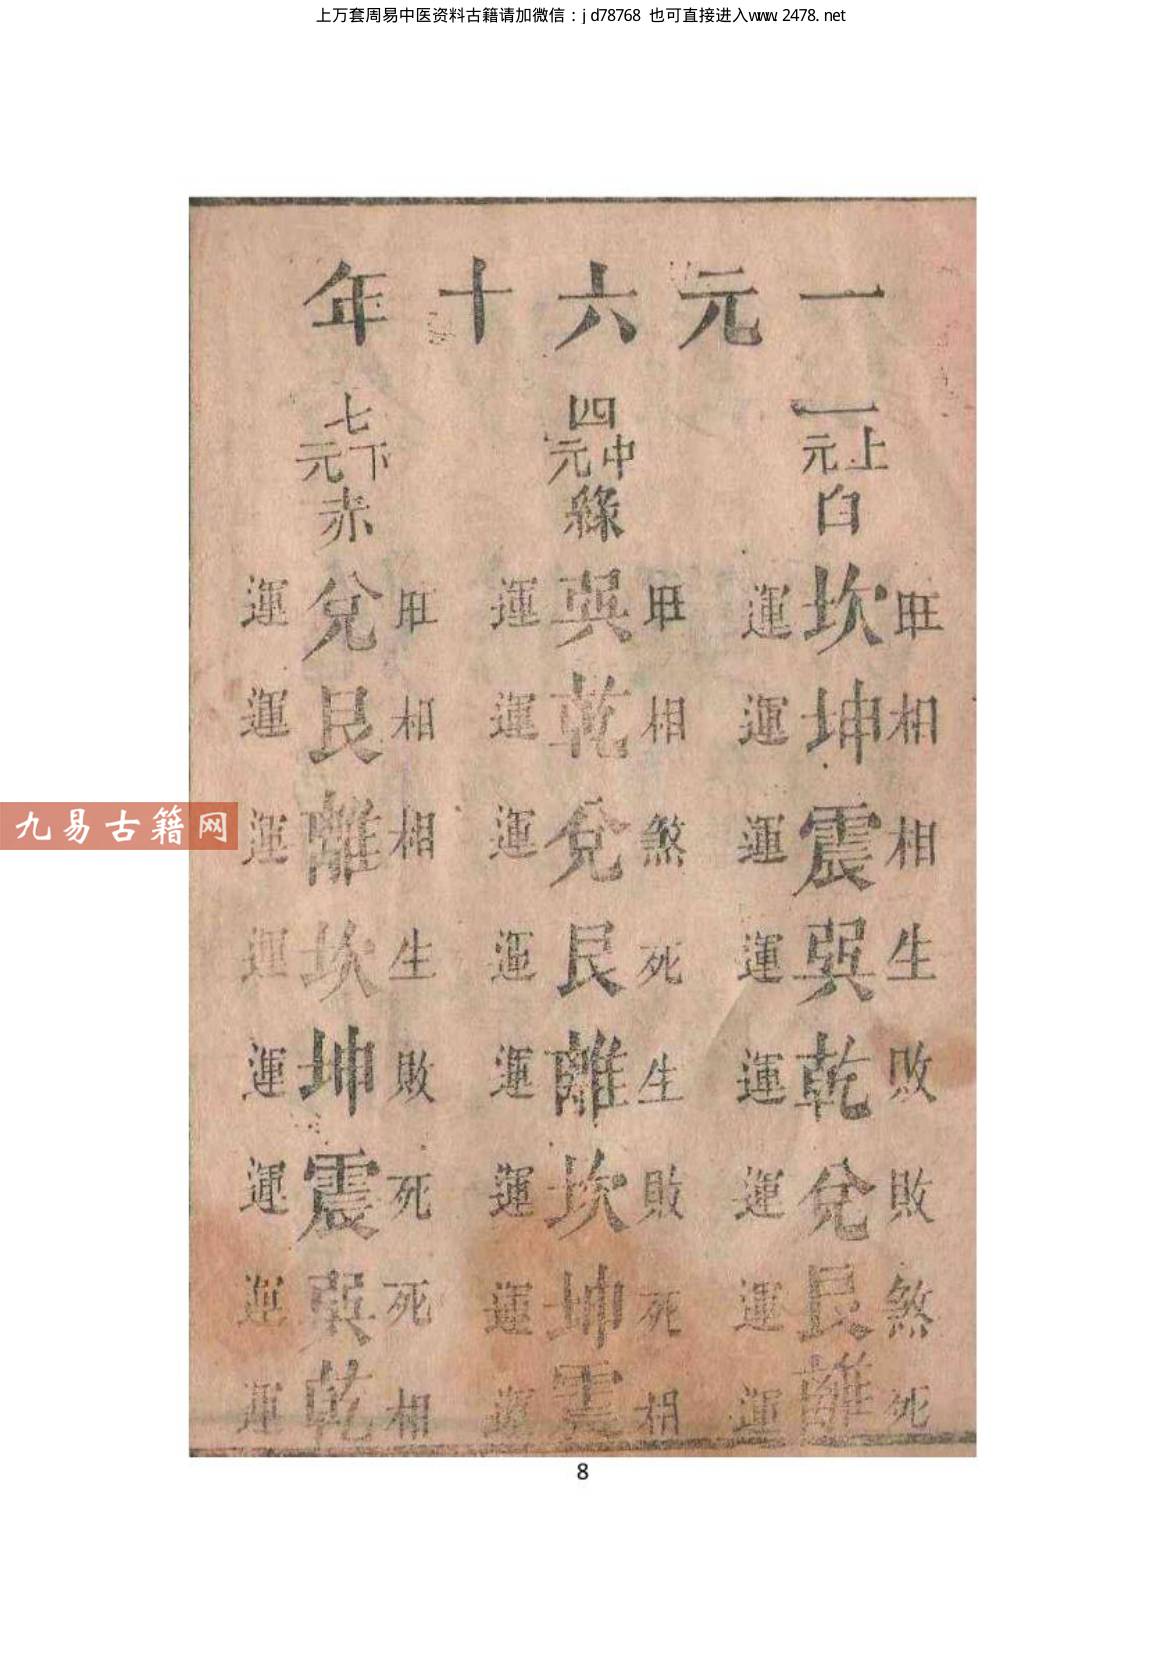 上万套周易中医资料古籍请加微信：jd78768 也可直接进入www.2478.net
一元六十年
一上元白
旺坎運
相坤運
相震運
生巽運
敗乾運
敗兌運
煞艮運
死離運
四中元綠
旺巽運
相乾運
煞兌運
死艮運
生離運
敗坎運
死坤運
相震運
七下元赤
旺兌運
相艮運
相離運
生坎運
敗坤運
死震運
死巽運
相乾運
九易古籍网
8